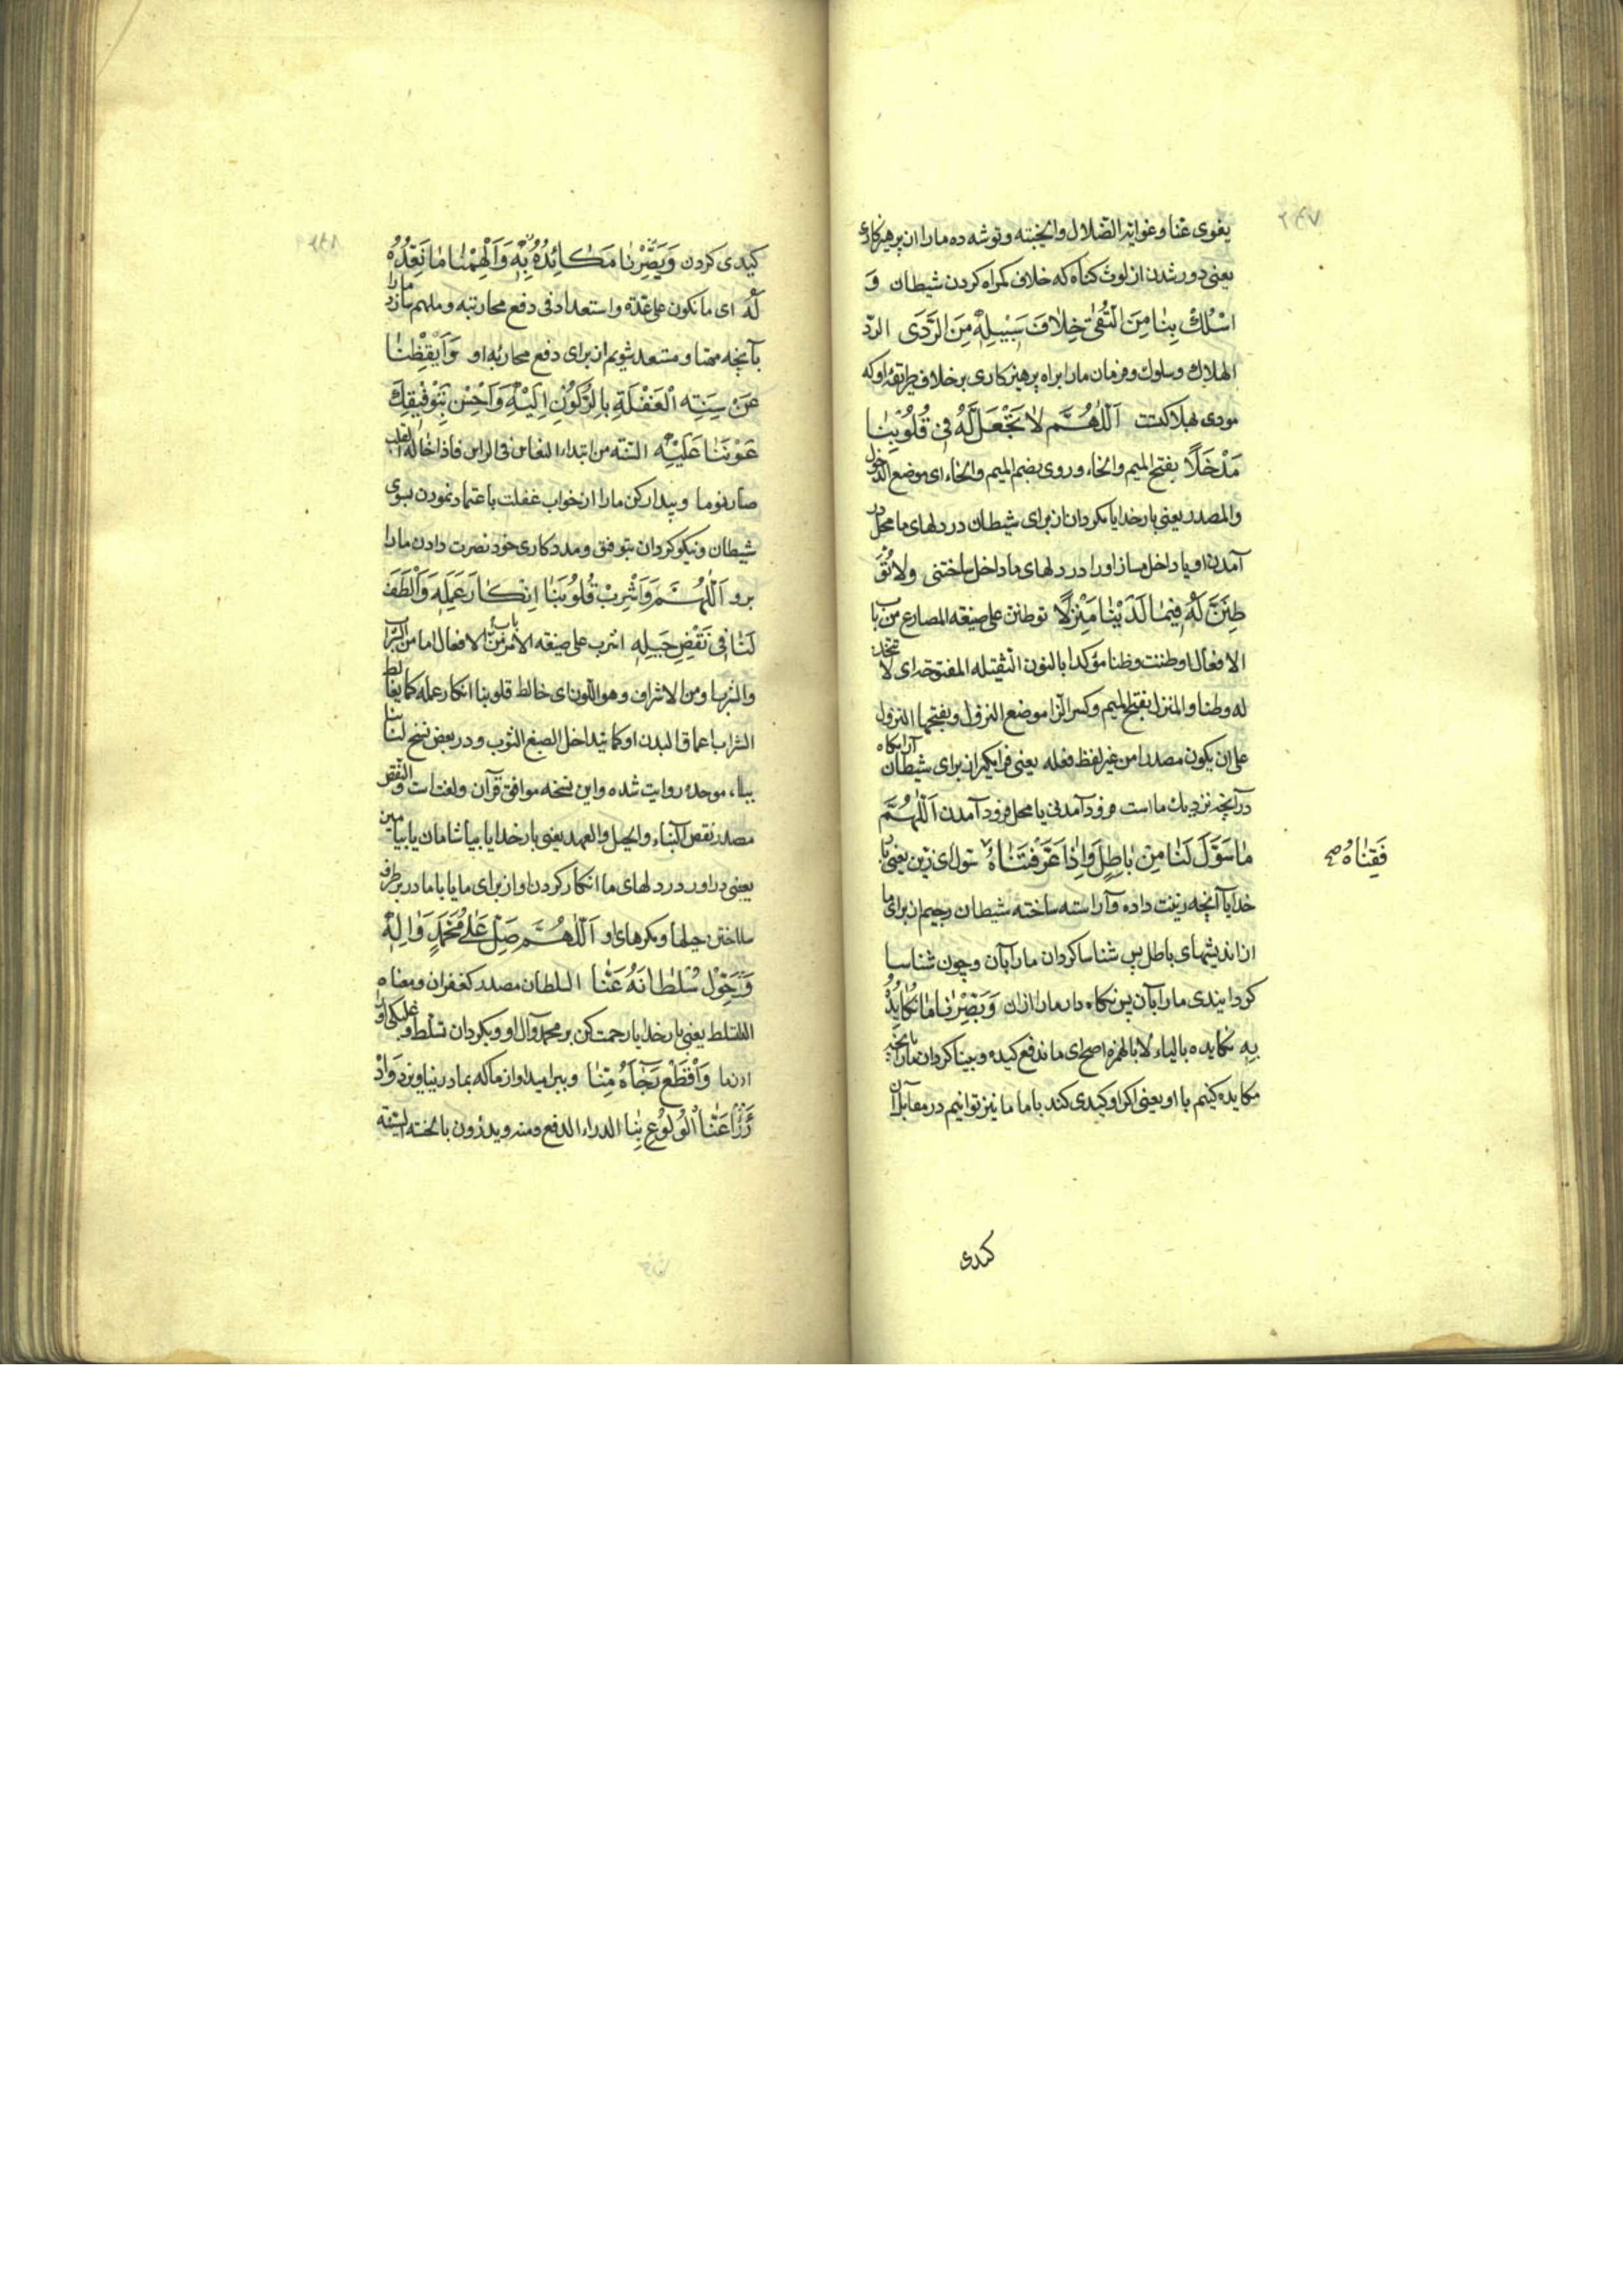 یغوی عنا وغوایه الضلال وانجبته وتوشه ده ما را از پرهیزکاری
یعنی دور شدن از لوث کناه که خلاف کمراه کردن شیطان وَ
اسْلُكْ بِنَا مِنَ التُّقىٰ خِلَافَ سَبِيْلِهِ مِنَ الرَّدَى الرد
الهلاك وسلوك وفرمان ما را براه پرهیزکاری برخلاف طریقه او که
مودی بهلاکتست اَللّٰهُمَّ لَا تَجْعَلْ لَهُ فِى قُلُوْبِنَا
مَدْخَلًا بفتح المیم والخاء وروی بضم المیم والخاء ای موضع الدخول
والمصدر یعنی بار خدایا مکردان از برای شیطان در دلهای ما محل در
آمدن او یا داخل مساز او را در دلهای ما داخل ساختنی ولا تُوَ
طِنَنَّ لَهُ فِيْمَا لَدَيْنَا مَنْزِلًا توطنن علی صیغه المضارع من باب
الافعال اوطننت وطنا مؤکدا بالنون الثقیله المفتوحه ای لا تتخذ
له وطنا والمنزل بفتح المیم وکسر الزا موضع النزول وبفتحها النزول
علی ان یکون مصدرا من غیر لفظ فعله یعنی فرا مکیران برای شیطان آرامکاه
در آنچه نزدیك ماست فرود آمدنی یا محل فرود آمدن اَللّٰهُمَّ
مَا سَوَّلَ لَنَا مِنْ بَاطِلٍ وَاِذَا عَرَّفْتَنَاهُ سول ای زین یعنی بار
فَقِنَاهُ صح
خدایا آنچه زینت داده وآراسته ساخته شیطان رجیم از برای ما
از اندیشهای باطل پس شناسا کردان ما را بآن وچون شناسا
کردانیدی ما را بآن پس نکاه دار ما را از ان وَبَصِّرْنَا مَا نُكَايِدُهُ
بِهِ نکایده بالیاء لا بالهمزه اصح ای ما ندفع کیده وبینا کردان ما را بآنچه
مکایده کنیم با او یعنی اکر او کیدی کند با ما ما نیز توانیم در مقابل آن
کیدی
کیدی کردن وَبَصِّرْنَا مَكَائِدُهُ بِهِ وَاَلْهِمْنَا مَا نُعِدُّهُ
لَهُ ای ما نکون علی عدة واستعداد فی دفع محاربته وملهم ساز ما را
بآنچه مهیا ومستعد شویم از برای دفع محاربه او وَاَيْقِظْنَا
عَنْ سِنَةِ الْغَفْلَةِ بِالرُّكُوْنِ اِلَيْهِ وَاَحْسِنْ بِتَوْفِيْقِكَ
عَوْنَنَا عَلَيْهِ السنه من ابتداء النعاس فی الراس فاذا خالط القلب
صار نوما وبیدار کن ما را از خواب غفلت باعتماد نمودن بسوی
شیطان ونیکو کردان بتوفیق ومددکاری خود نصرت دادن ما را
برو اَللّٰهُمَّ وَاَشْرِبْ قُلُوْبَنَا اِنْكَارَ عَمَلِهِ وَاَلْطَفْ
لَنَا فِى نَقْضِ حِيَلِهِ اشرب علی صیغه الامر من باب الافعال اما من الشراب
والشربها ومن الاشراف وهو اللون ای خالط قلوبنا انکار عمله کما یخالط
الشراب اعماق البدن او کما یتداخل الصبغ الثوب ودر بعض نسخ لنا بنا
بباء موحده روایت شده واین نسخه موافق قرآن ولغتست والنقض
مصدر نقض البناء والحبل والعهد یعنی بار خدایا بیاشامان یا بیامیز
یعنی در اور در دلهای ما انکار کردن او از برای ما یا با ما در برطرف
ساختن حیلها ومکرهای او اَللّٰهُمَّ صَلِّ عَلٰى مُحَمَّدٍ وَاٰلِهِ
وَحَوِّلْ سُلْطَانَهُ عَنَّا السلطان مصدر کغفران ومعناه
التسلط یعنی بار خدایا رحمت کن بر محمد وآل او وبکردان تسلط وغلبکی او را
از ما وَاقْطَعْ رَجَاهُ مِنَّا وببر امید او از ما که بما در نیاویزد وَادْ
رَأْ عَنَّا الْوُلُوْعَ بِنَا الدراء الدفع ومنه ویدرؤن بالحسنه السیئه